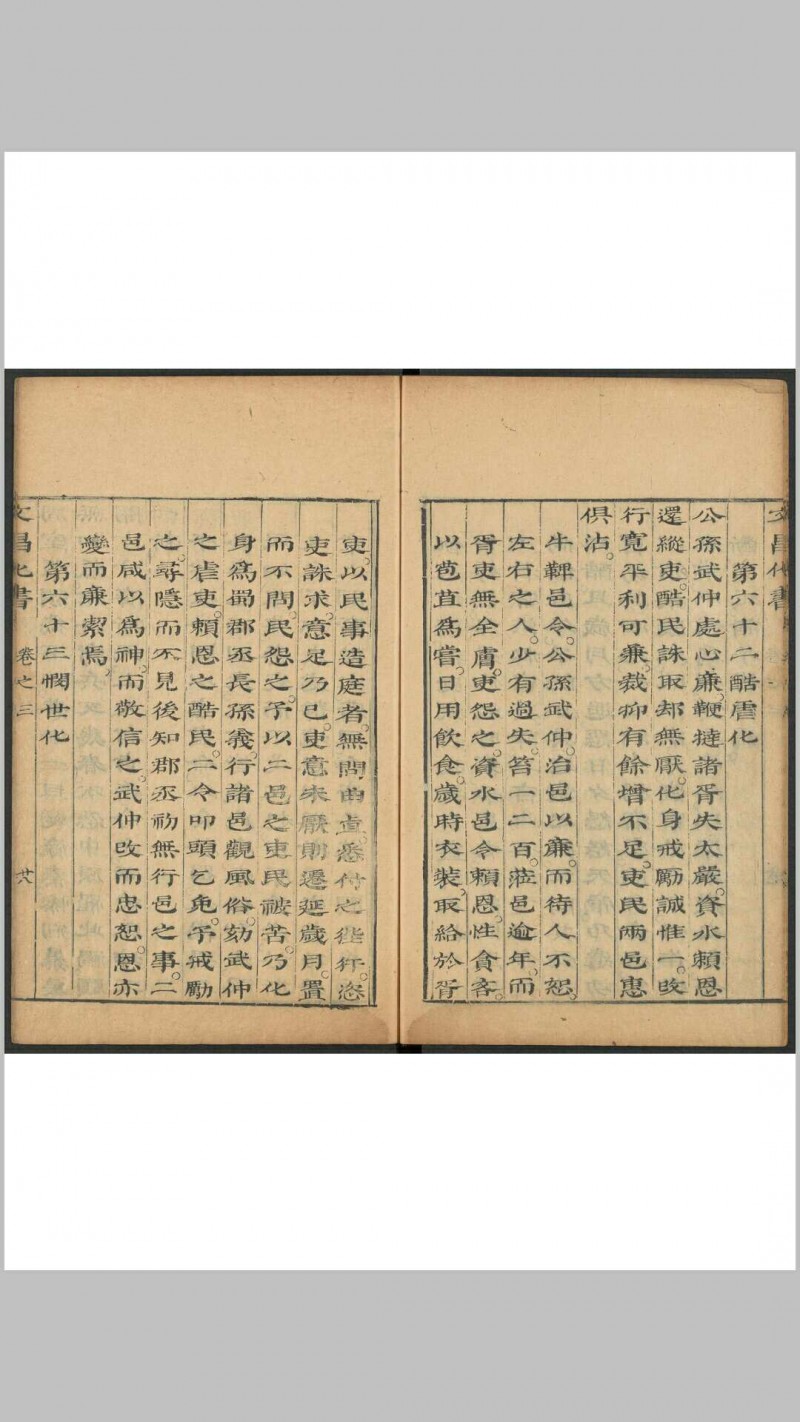 文昌化書
第六十二酷虐化
公孫武仲處心廉。鞭撻諸胥失太嚴。資水賴恩
還縱吏。酷民誅取却無厭。化身戒勵誠惟一。改
行寬平利可兼。裁抑有餘增不足。吏民兩邑惠
俱沾。
牛鞞邑令。公孫武仲。治邑以廉。而待人不恕。
左右之人。少有過失。笞一二百。蒞邑逾年。而
胥吏無全膚。吏怨之。資水邑令賴恩。性貪吝。
以苞苴為嘗。日用飲食。歲時衣裝。取給於胥
吏。以民事造庭者。無問曲直。悉付之徃行。恣
吏誅求。意足乃已。吏意未厭。則遷延歲月。置
而不問。民怨之。予以二邑之吏民被苦。乃化
身爲蜀郡丞長孫義。行諸邑觀風俗。劾武仲
之虐吏。賴恩之酷民。二令叩頭乞免。予戒勵
之。尋隱而不見。後知郡丞初無行邑之事。二
邑咸以爲神。而敬信之。武仲改而忠恕。恩亦
變而廉潔焉。
第六十三憫世化
文昌化書 卷之三 廿八